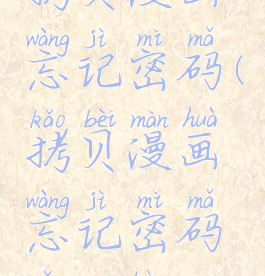 wàng jì mì mǎ
忘记密码(
kǎo bèi màn huà
拷贝漫画
wàng jì mì mǎ
忘记密码